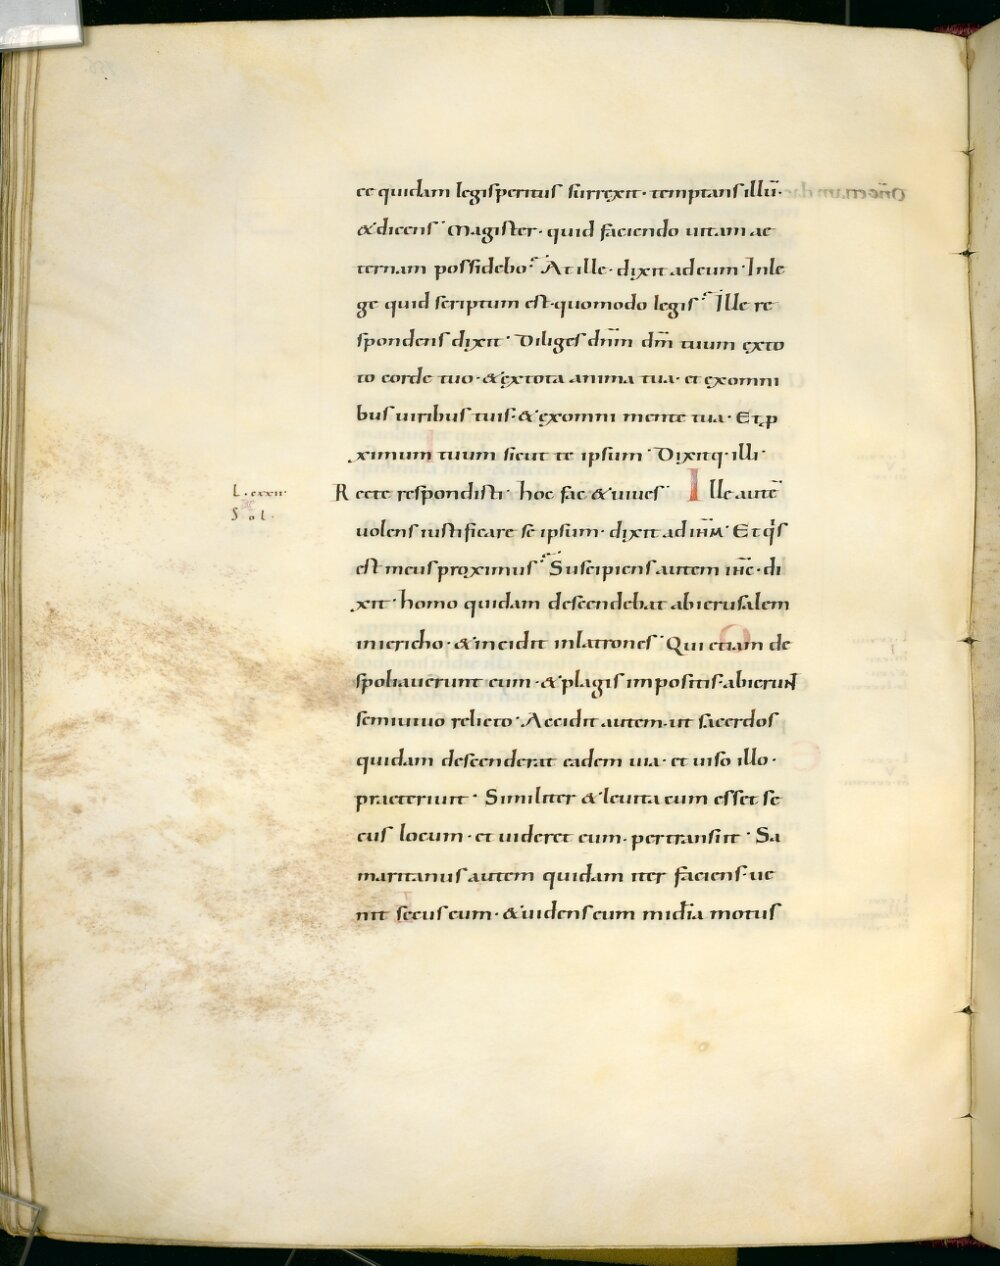 ce quidam legisperitus surrexit· temptans illū·
& dicens· Magister· quid faciendo uitam ae
ternam possidebo? At ille· dixit ad eum· In le
ge quid scriptum est· quomodo legis? Ille re
spondens dixit· Diliges dn̄m dm̄ tuum ex to
to corde tuo· & ex tota anima tua· et ex omni
bus uiribus tuis· & ex omni mente tua· Et p
ximum tuum sicut te ipsum· Dixitq· illi·
L·cxxii· Recte respondisti· hoc fac & uiues· Ille autē
Sol·
uolens iustificare se ipsum· dixit ad ihm̄· Et q̇s
est meus proximus? Suscipiens autem ihc̄· di
xit· homo quidam descendebat ab ierusalem
in iericho· & incidit in latrones· Qui etiam de
spoliauerunt eum· & plagis impositis· abierunt
semiuiuo relicto· Accidit autem· ut sacerdos
quidam descenderat eadem uia· et uiso illo·
praeteriuit· Similiter & leuita cum esset se
cus locum· et uideret eum· pertransiit· Sa
maritanus autem quidam iter faciens· ue
nit secus eum· & uidens eum mīdia motus